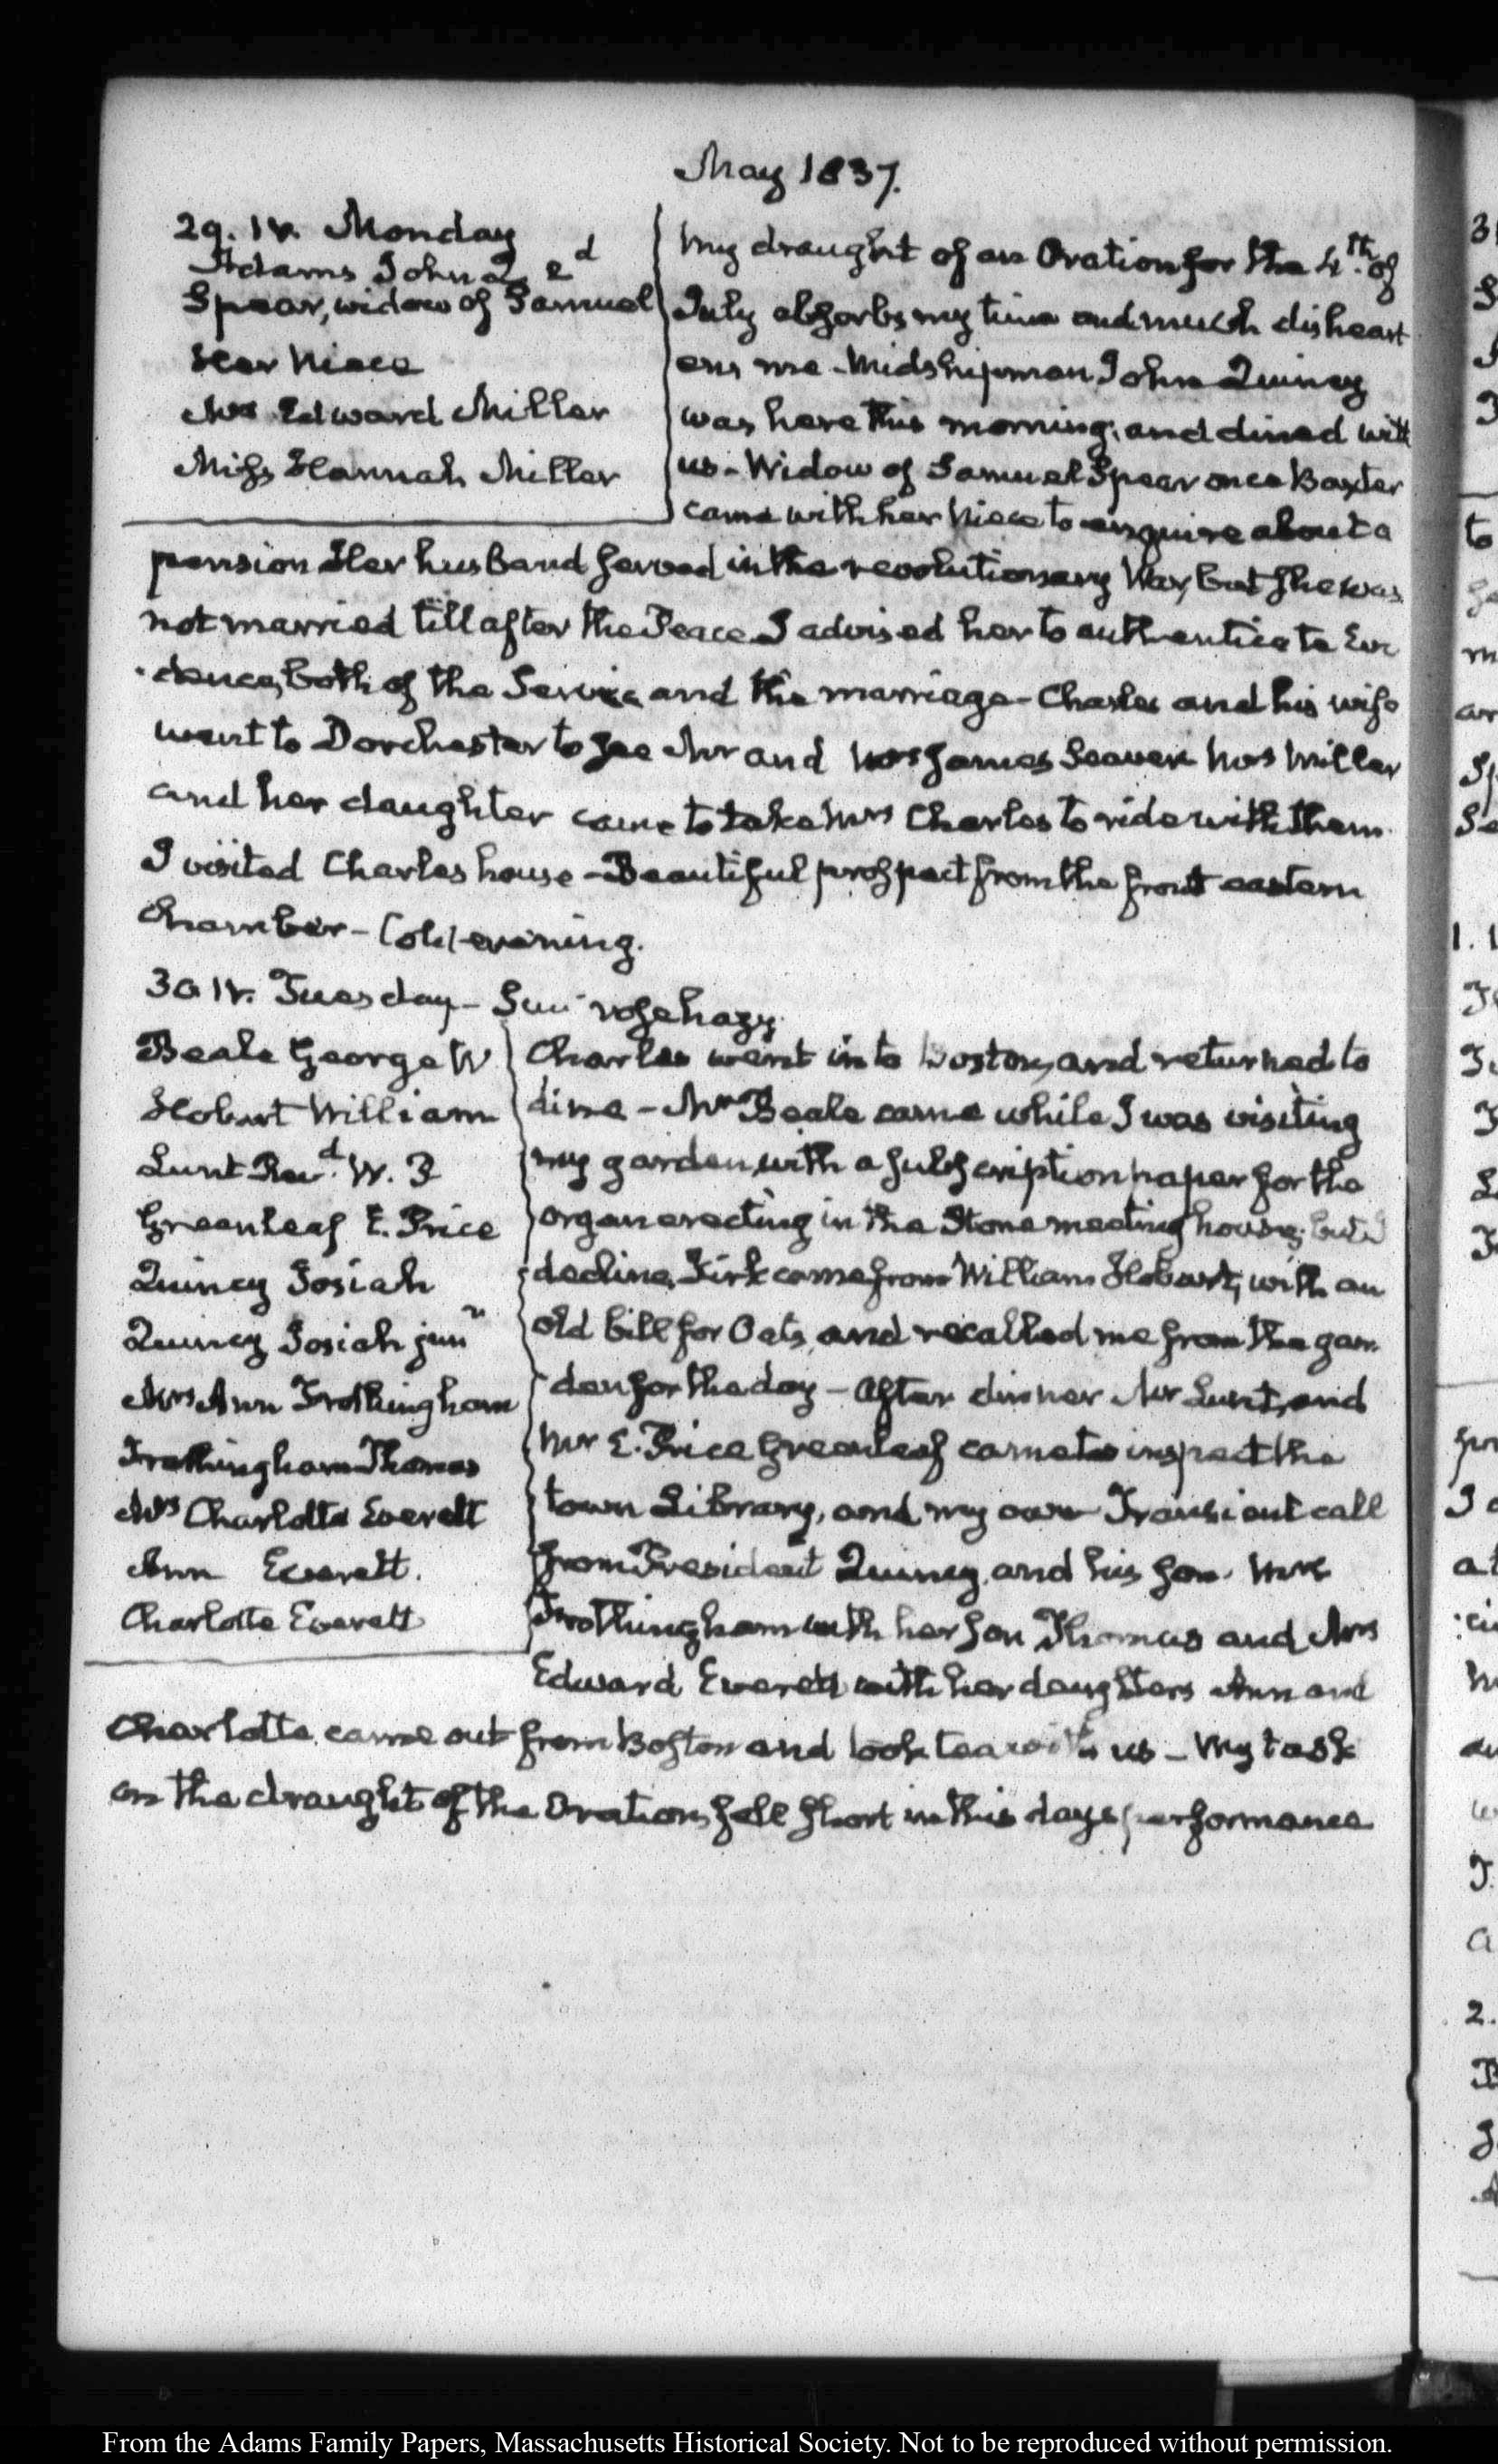 May 1837.
29. IV. Monday
Adams John Q. 2d
Spear, widow of Samuel
Her Niece
Mrs Edward Miller
Miss Hannah Miller
My draught of an Oration for the 4th. of
July absorbs my time and much disheart
ens me - Midshipman John Quincy
was here this morning, and dined with
us - Widow of Samuel Spear once Baxter
came with her Niece to enquire about a
pension Her husband served in the revolutionary War, but she was
not married till after the Peace I advised her to authenticate Evi
dence, both of the Service and the marriage - Charles and his wife
went to Dorchester to see Mr and Mrs James Seaver Mrs Miller
and her daughter came to take Mrs Charles to ride with them.
I visited Charles house - Beautiful prospect from the front eastern
Chamber - Cold evening.
30 IV. Tuesday - Sun rose hazy.
Beale George W
Hobart William
Lunt Revd. W. P
Greenleaf E. Price
Quincy Josiah
Quincy Josiah junr
Mrs Ann Frothingham
Frothingham Thomas
Mrs Charlotte Everett
Ann Everett.
Charlotte Everett
Charles went in to Boston, and returned to
dine - Mr Beale came while I was visiting
my garden, with a subscription paper for the
organ erecting in the Stone meeting house; but I
decline. Kirk came from William Hobart, with an
old bill for Oats, and recalled me from the gar
den for the day - After dinner Mr Lunt, and
Mr E. Price Greenleaf came to inspect the
town Library, and my own Transient call
from President Quincy, and his son. Mrs
Frothingham with her son Thomas and Mrs
Edward Everett with her daughters Ann and
Charlotte came out from Boston and took tea with us - My task
on the draught of the Oration, fell short in this days performance
From the Adams Family Papers, Massachusetts Historical Society. Not to be reproduced without permission.